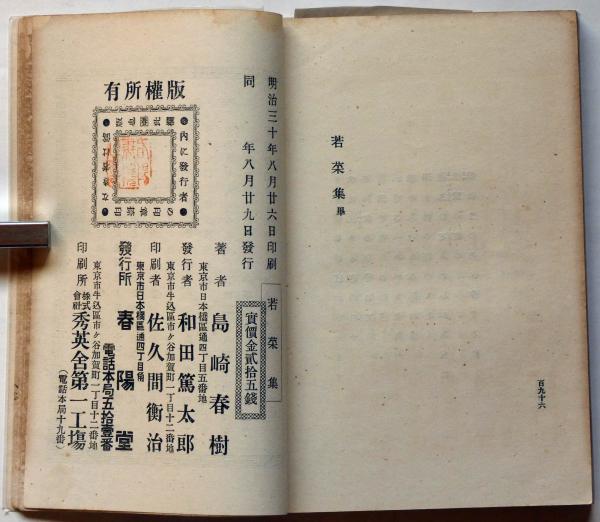 若菜集 畢
百九十六
明治三十年八月廿六日印刷
同年八月廿九日發行
若菜集
實價金貳拾五錢
版權所有
著者 島崎春樹
東京市日本橋區通四丁目五番地
發行者 和田篤太郎
東京市牛込區市ヶ谷加賀町一丁目十二番地
印刷者 佐久間衡治
東京市日本橋區通四丁目角
發行所 春陽堂
電話本局五拾壹番
東京市牛込區市ヶ谷加賀町一丁目十二番地
印刷所 株式會社 秀英舍第一工塲
(電話本局十九番)